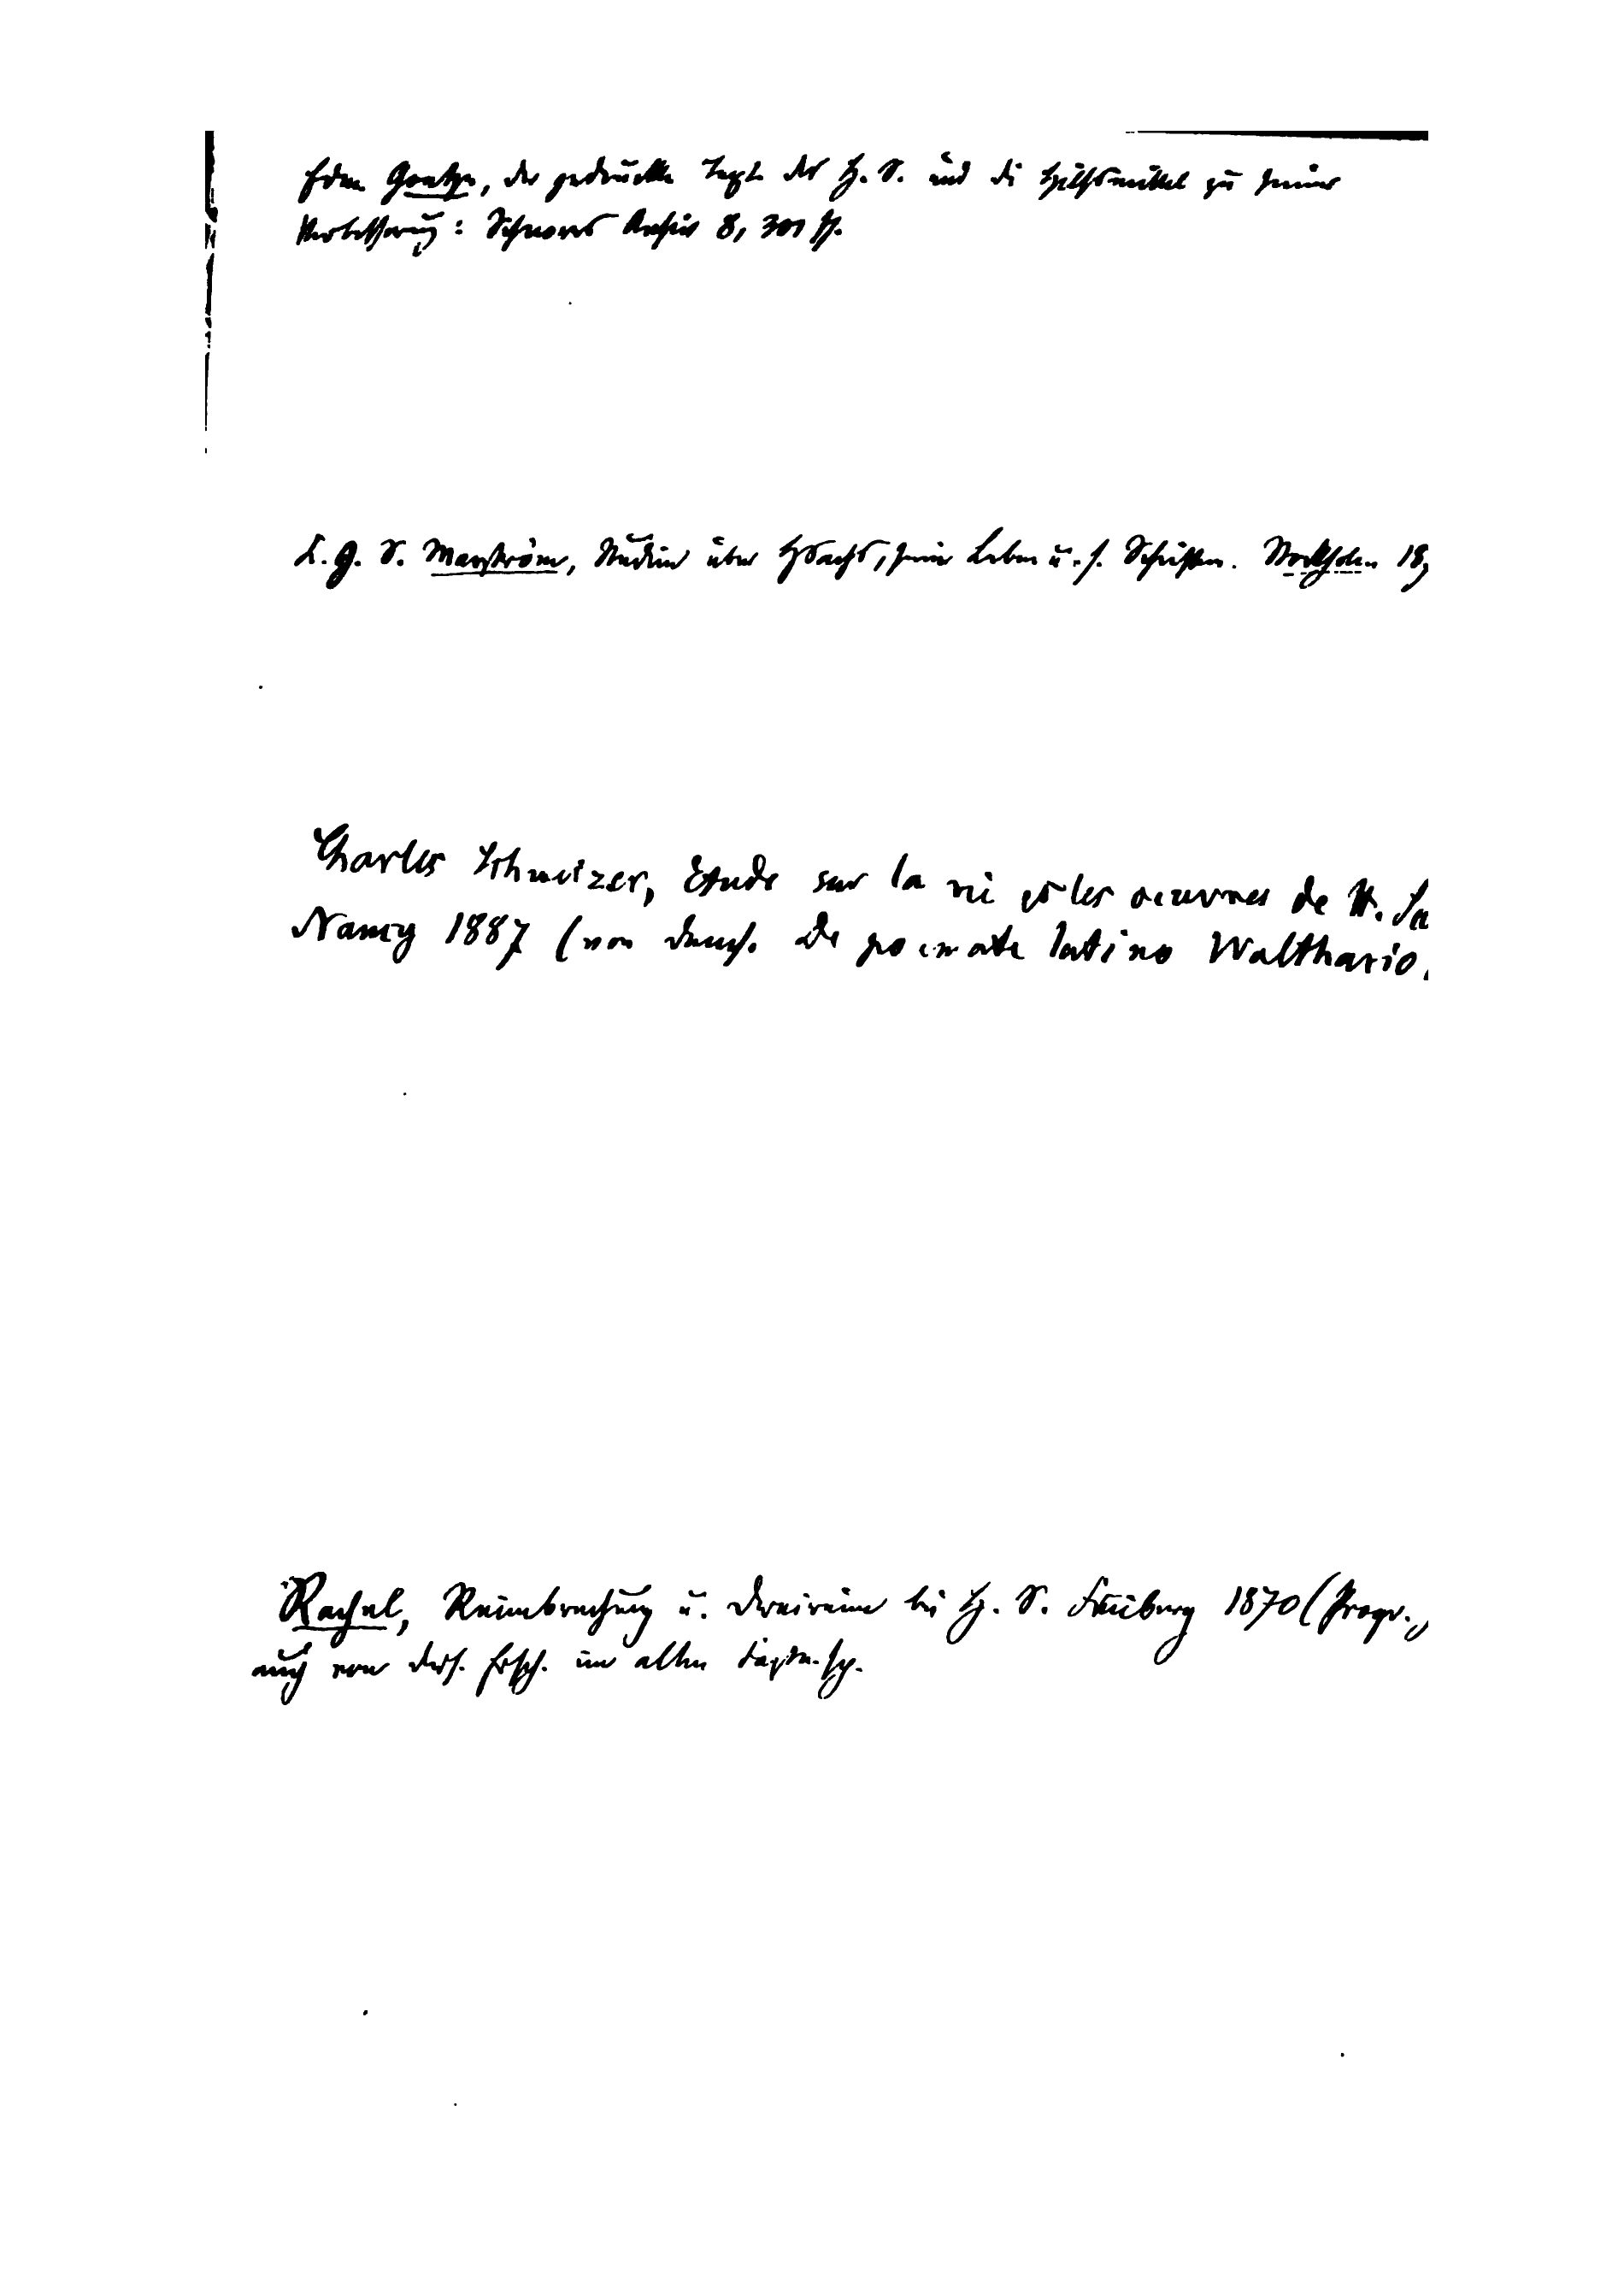 Edm. Goetze, der gedruckte Text des H. S. und die Hilfsmittel zu seiner
Verbesserung: Schnorrs Archiv 8, 301 ff.
L. G. S. Marström, Studien über HSachs, sein Leben u. s. Schriften. Stockholm 18
Charles Schweizer, Etude sur la vie et les oeuvres de H. Sa
Nancy 1887 (von dems. De poemate latino Walthario.
Rachel, Reimbrechung u. Dreireim bei H. S. Freiburg 1870 (Progr.,
auch von ders. im alten